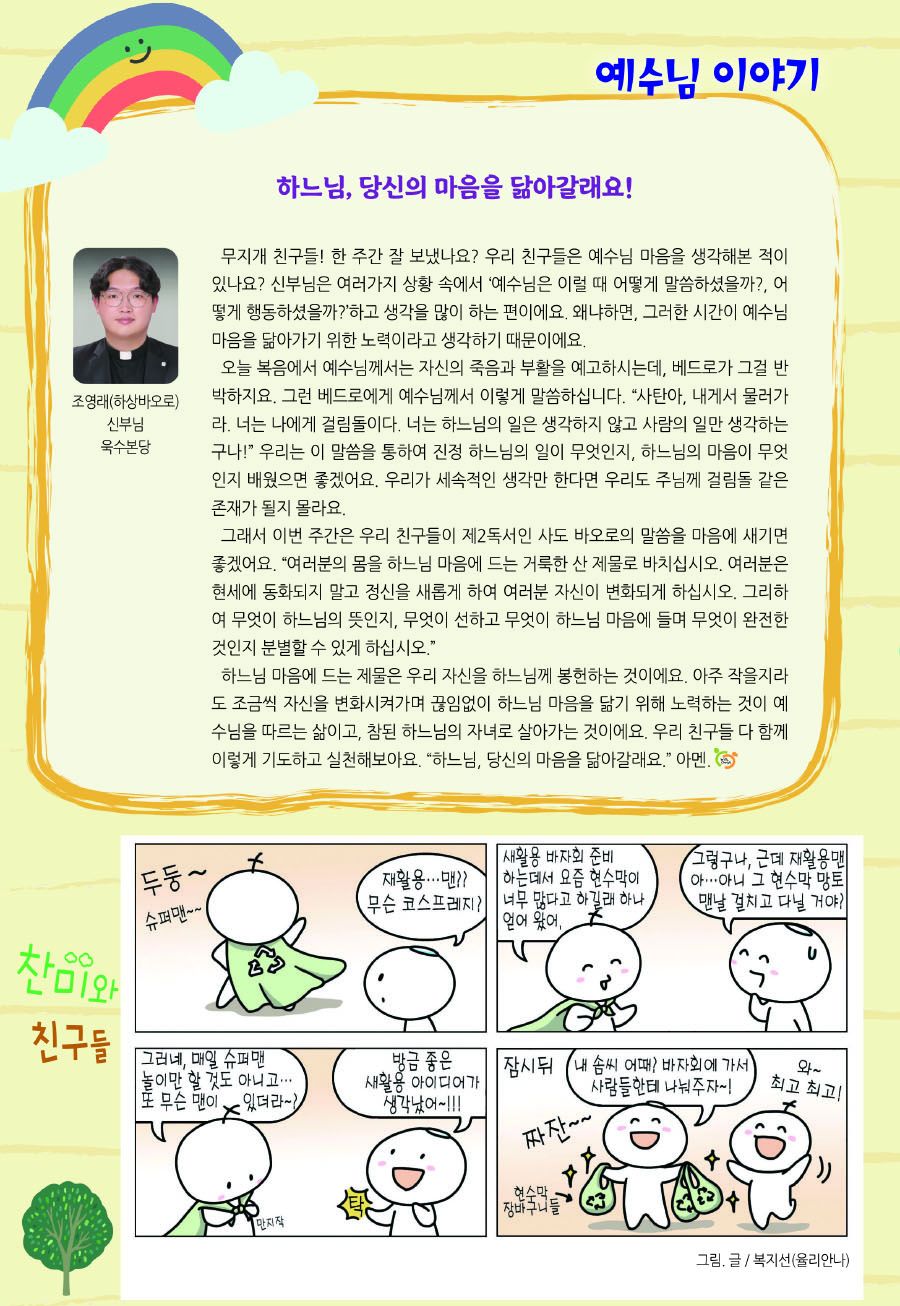 예수님 이야기
하느님, 당신의 마음을 닮아갈래요!
조영래(하상바오로)
신부님
욱수본당
무지개 친구들! 한 주간 잘 보냈나요? 우리 친구들은 예수님 마음을 생각해본 적이
있나요? 신부님은 여러가지 상황 속에서 ‘예수님은 이럴 때 어떻게 말씀하셨을까?, 어
떻게 행동하셨을까?’하고 생각을 많이 하는 편이에요. 왜냐하면, 그러한 시간이 예수님
마음을 닮아가기 위한 노력이라고 생각하기 때문이에요.
오늘 복음에서 예수님께서는 자신의 죽음과 부활을 예고하시는데, 베드로가 그걸 반
박하지요. 그런 베드로에게 예수님께서 이렇게 말씀하십니다. “사탄아, 내게서 물러가
라. 너는 나에게 걸림돌이다. 너는 하느님의 일은 생각하지 않고 사람의 일만 생각하는
구나!” 우리는 이 말씀을 통하여 진정 하느님의 일이 무엇인지, 하느님의 마음이 무엇
인지 배웠으면 좋겠어요. 우리가 세속적인 생각만 한다면 우리도 주님께 걸림돌 같은
존재가 될지 몰라요.
그래서 이번 주간은 우리 친구들이 제2독서인 사도 바오로의 말씀을 마음에 새기면
좋겠어요. “여러분의 몸을 하느님 마음에 드는 거룩한 산 제물로 바치십시오. 여러분은
현세에 동화되지 말고 정신을 새롭게 하여 여러분 자신이 변화되게 하십시오. 그리하
여 무엇이 하느님의 뜻인지, 무엇이 선하고 무엇이 하느님 마음에 들며 무엇이 완전한
것인지 분별할 수 있게 하십시오.”
하느님 마음에 드는 제물은 우리 자신을 하느님께 봉헌하는 것이에요. 아주 작을지라
도 조금씩 자신을 변화시켜가며 끊임없이 하느님 마음을 닮기 위해 노력하는 것이 예
수님을 따르는 삶이고, 참된 하느님의 자녀로 살아가는 것이에요. 우리 친구들 다 함께
이렇게 기도하고 실천해보아요. “하느님, 당신의 마음을 닮아갈래요.” 아멘.
찬미와
친구들
두둥~
슈퍼맨~~
재활용…맨??
무슨 코스프레지?
새활용 바자회 준비
하는데서 요즘 현수막이
너무 많다고 하길래 하나
얻어 왔어,
그렇구나, 근데 재활용맨
아…아니 그 현수막 망토
맨날 걸치고 다닐 거야?
그러네, 매일 슈퍼맨
놀이만 할 것도 아니고…
또 무슨 맨이 있더라~?
만지작
방금 좋은
새활용 아이디어가
생각났어~!!!
탁
잠시뒤
내 솜씨 어때? 바자회에 가서
사람들한테 나눠주자~!
와~
최고 최고!
짜잔~~
현수막
장바구니들
그림. 글 / 복지선(율리안나)